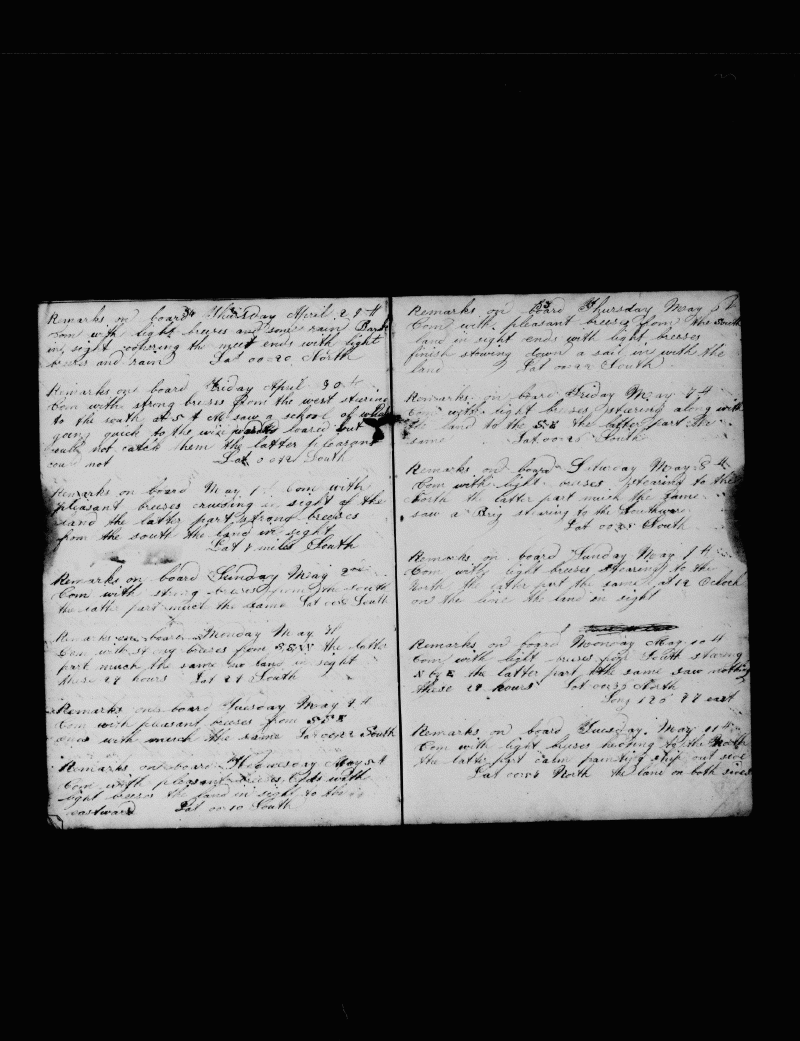 Remarks on board Thursday April 29th
Com with light breeses and some rain Bark
in sight the ends with light
and rain Lat 00=20 North
Remarks on board Friday April 30th
Com with strong breeses from the west stearing
to the south at 5 A M saw a school of
going quick to the loared but
could not catch them the latter
could not Lat 0 South
Remarks on board May 1st Com with
pleasant breeses cruising in sight of the
land the latter part strong breeses
from the south the land in sight
Lat 8 miles South
Remarks on board Sunday May 2nd
Com with strong breeses from the south
the latter part much the same Lat South
Remarks on board Monday May 3d
Com with breeses from SSW the latter
part much the same no land in sight
these 24 hours Lat South
Remarks on board Tuesday May 4th
Com with pleasant breeses from SSE
ends with much the same Lat South
Remarks on board Wednesday May 5th
Com with pleasant breeses Ends with
light breeses the land in sight to the
eastward Lat 00=10 South
Remarks on board Thursday May 6th
Com with pleasant breeses from the South
land in sight ends with light breeses
finish stowing down a sail in with the
land Lat South
Remarks on board Friday May 7th
Com with light breeses stearing along with
the land to the SE the latter part the
same Lat South
Remarks on board Saturday May 8th
Com with light breeses stearing to the
North the latter part much the same
saw a Brig stearing to the Southward
Lat South
Remarks on board Sunday May 9th
Com with light breeses stearing to the
North the latter part the same at 12 Oclock
on the line the land in sight
Remarks on board Monday May 10th
Com with light breeses from South stearing
N by E the latter part the same saw nothing
these 24 hours Lat North
Long East
Remarks on board Tuesday May 11th
Com with light breeses heading to the North
the latter part calm painting ship out side
Lat North the land on both sides